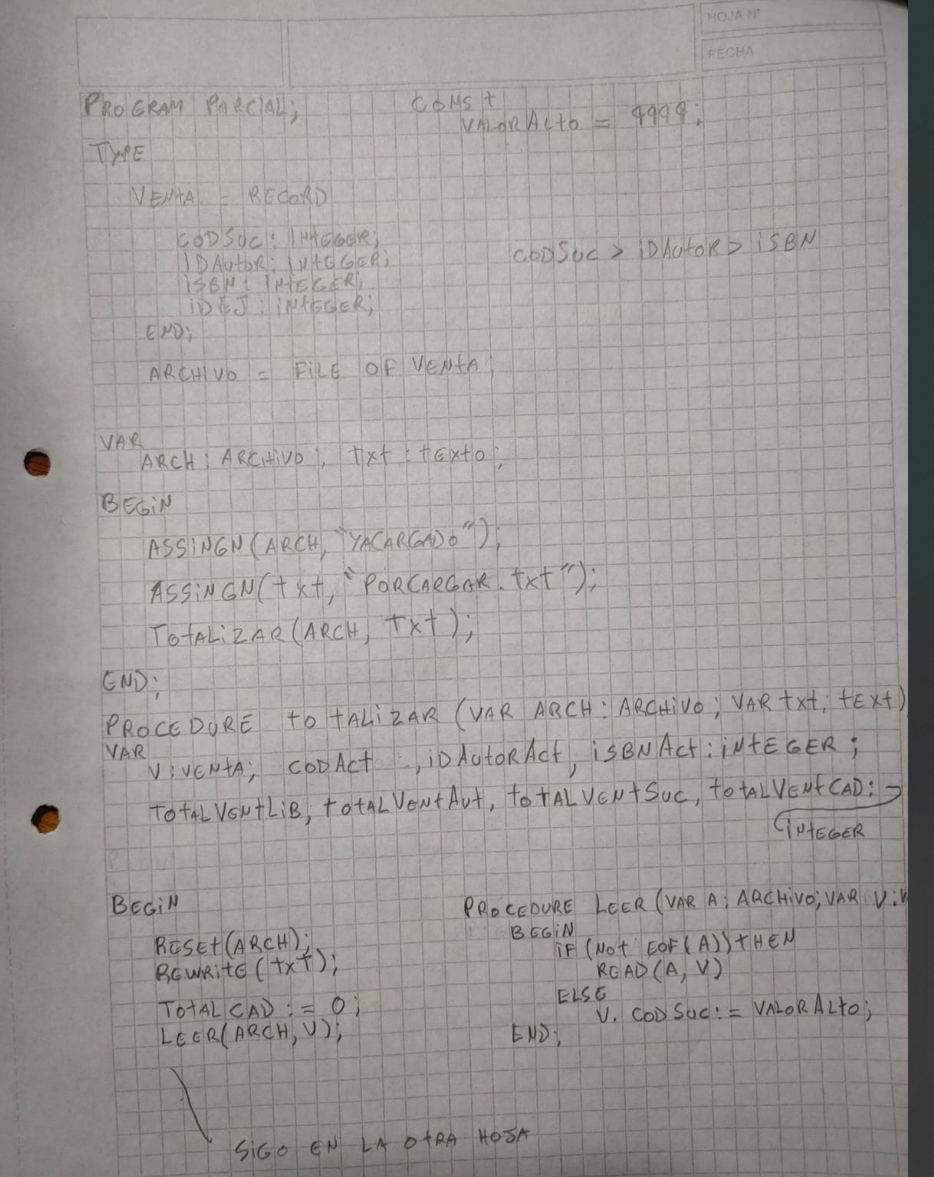 HOJA Nº
FECHA
PROGRAM PARCIAL;
CONST
VALORALTO = 9999;
TYPE
VENTA = RECORD
CODSUC: INTEGER;
IDAUTOR: INTEGER;
ISBN: INTEGER;
IDEJ: INTEGER;
END;
CODSUC > IDAUTOR > ISBN
ARCHIVO = FILE OF VENTA;
VAR
ARCH: ARCHIVO; txt: tExto;
BEGIN
ASSINGN(ARCH, "YACARGADO");
ASSINGN(txt, "PORCARGAR.txt");
TOTALIZAR(ARCH, txt);
END;
PROCEDURE TOTALIZAR (VAR ARCH: ARCHIVO; VAR txt: tExt)
VAR
V: VENTA; CODACT, IDAUTORACT, ISBNACT: INTEGER;
TOTALVENTLIB, TOTALVENTAUT, TOTALVENTSUC, TOTALVENTCAD:
INTEGER
BEGIN
RESET(ARCH);
REWRITE(txt);
TOTALCAD := 0;
LEER(ARCH, V);
PROCEDURE LEER (VAR A: ARCHIVO; VAR V:
BEGIN
IF (NOT EOF(A)) THEN
READ(A, V)
ELSE
V. CODSUC := VALORALTO;
END;
SIGO EN LA OTRA HOJA